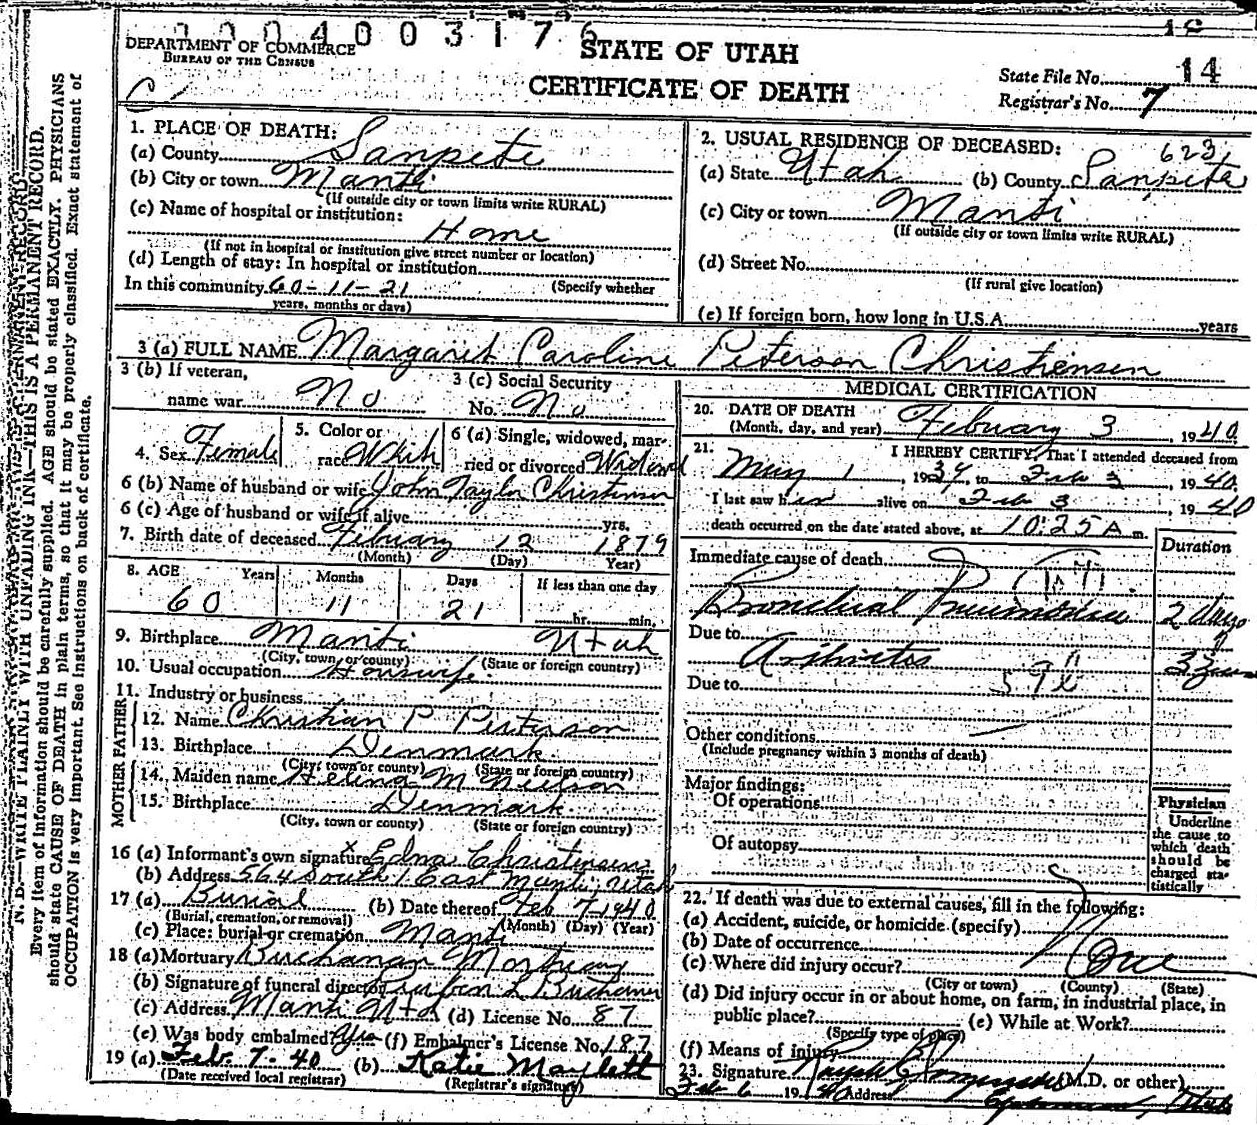 0004003176
18
DEPARTMENT OF COMMERCE
BUREAU OF THE CENSUS
STATE OF UTAH
CERTIFICATE OF DEATH
State File No. 14
Registrar's No. 7
C
N. B.—WRITE PLAINLY WITH UNFADING INK—THIS IS A PERMANENT RECORD.
Every item of information should be carefully supplied. AGE should be stated EXACTLY. PHYSICIANS
should state CAUSE OF DEATH in plain terms, so that it may be properly classified. Exact statement of
OCCUPATION is very important. See instructions on back of certificate.
1. PLACE OF DEATH:
(a) County Sanpete
(b) City or town Manti
(If outside city or town limits write RURAL)
(c) Name of hospital or institution:
Home
(If not in hospital or institution give street number or location)
(d) Length of stay: In hospital or institution
In this community 60-11-21 (Specify whether
years, months or days)
2. USUAL RESIDENCE OF DECEASED:
623
(a) State Utah (b) County Sanpete
(c) City or town Manti
(If outside city or town limits write RURAL)
(d) Street No.
(If rural give location)
(e) If foreign born, how long in U.S.A. years
3 (a) FULL NAME Margaret Caroline Peterson Christensen
3 (b) If veteran,
name war No
3 (c) Social Security
No. No
4. Sex Female
5. Color or
race White
6 (a) Single, widowed, mar-
ried or divorced Widowed
6 (b) Name of husband or wife John Taylor Christensen
6 (c) Age of husband or wife if alive yrs.
7. Birth date of deceased February 12 1879
(Month) (Day) Year)
8. AGE Years Months Days If less than one day
60 11 21 hr. min.
9. Birthplace Manti Utah
(City, town or county) (State or foreign country)
10. Usual occupation Housewife
11. Industry or business
FATHER
12. Name Christian P. Peterson
13. Birthplace Denmark
(City, town or county) (State or foreign country)
MOTHER
14. Maiden name Helena M Neilson
15. Birthplace Denmark
(City, town or county) (State or foreign country)
16 (a) Informant's own signature x Edna Christensen
(b) Address 564 South 1 East Manti, Utah
17 (a) Burial (b) Date thereof Feb 7-1940
(Burial, cremation, or removal) (Month) (Day) (Year)
(c) Place: burial or cremation Manti
18 (a) Mortuary Buchanan Mortuary
(b) Signature of funeral director Reuben L Buchanan
(c) Address Manti Utah (d) License No. 87
(e) Was body embalmed? Yes (f) Embalmer's License No. 187
19 (a) Feb. 7-40 (b) Katie Maylett
(Date received local registrar) (Registrar's signature)
MEDICAL CERTIFICATION
20. DATE OF DEATH
(Month, day, and year) February 3, 1940
21. I HEREBY CERTIFY, That I attended deceased from
May 1, 1937, to Feb 3, 1940
I last saw her alive on Feb 3, 1940
death occurred on the date stated above, at 10:25 A m.
Duration
Immediate cause of death
Bronchial Pneumonia 2 days
Due to
Arthritis 3 years
Due to 59b
Other conditions
(Include pregnancy within 3 months of death)
Major findings:
Of operations
Of autopsy
Physician
Underline
the cause to
which death
should be
charged sta-
tistically
22. If death was due to external causes, fill in the following:
(a) Accident, suicide, or homicide (specify)
(b) Date of occurrence
(c) Where did injury occur?
(City or town) (County) (State)
(d) Did injury occur in or about home, on farm, in industrial place, in
public place? (e) While at Work?
(Specify type of place)
(f) Means of injury
23. Signature (M.D. or other)
Feb 6 1940 Address Utah